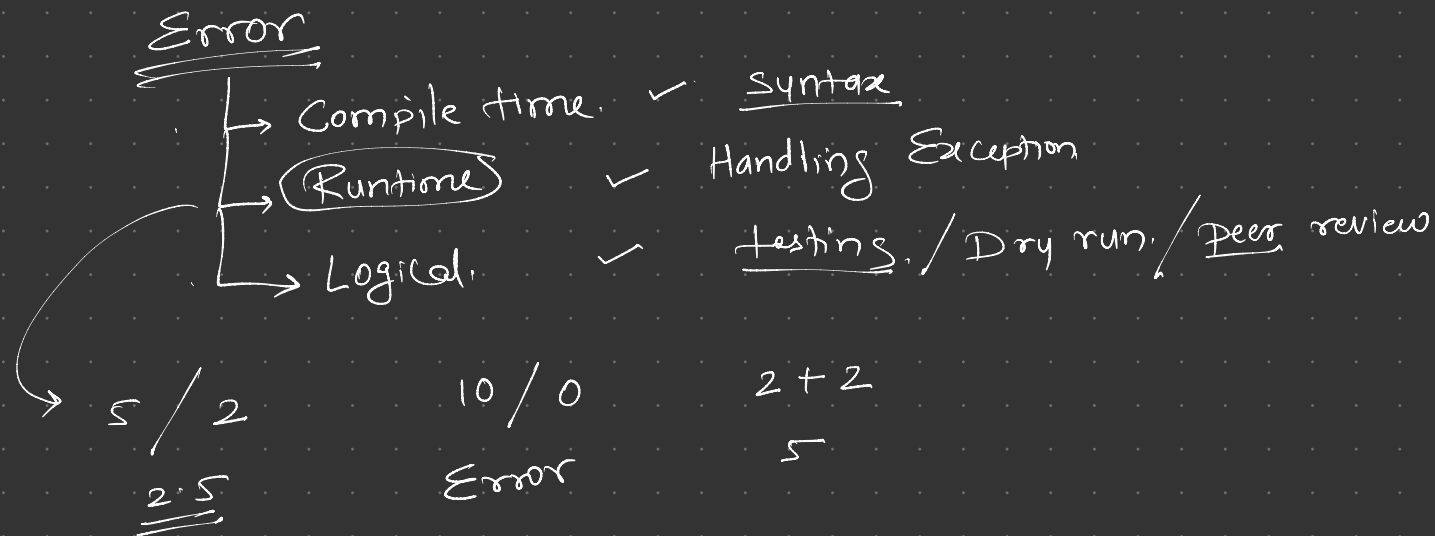 Error
Compile time. syntax
Runtime Handling Exception
Logical. testing. / Dry run. / peer review
5 / 2 10 / 0 2 + 2
2.5 Error 5